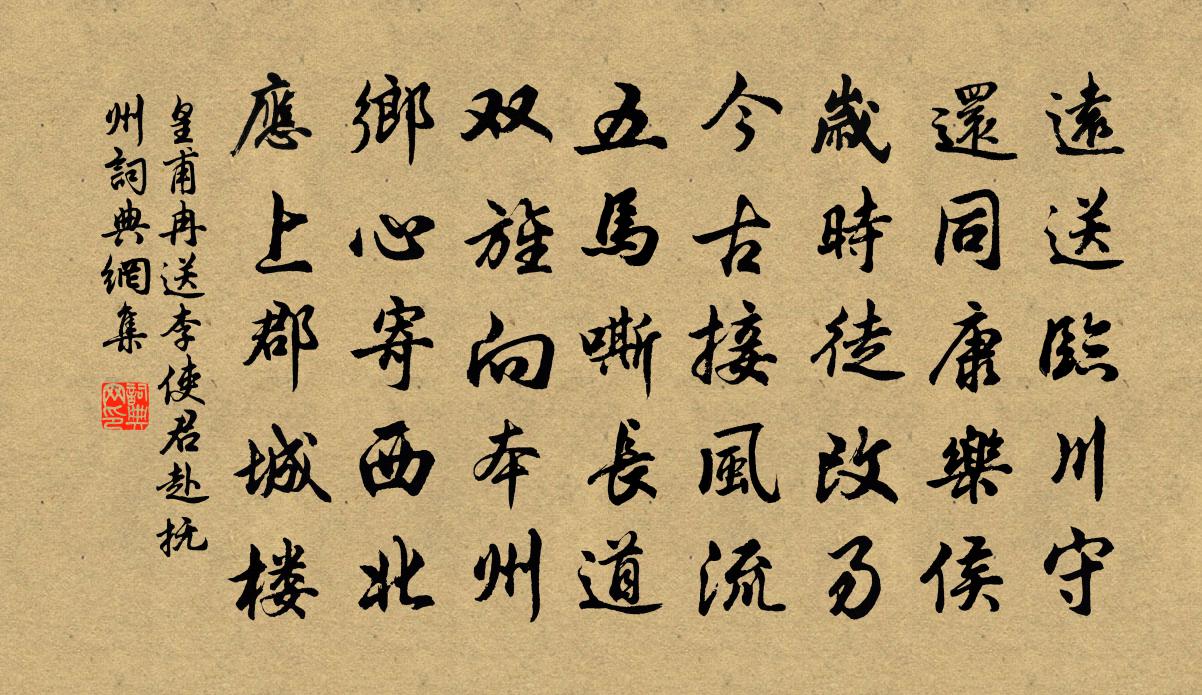 遠送臨川守
還同康樂侯
歲時徒改易
今古接風流
五馬嘶長道
双旌向本州
鄉心寄西北
應上郡城楼
皇甫冉送李使君赴抚
州詞典網集
詞典网印